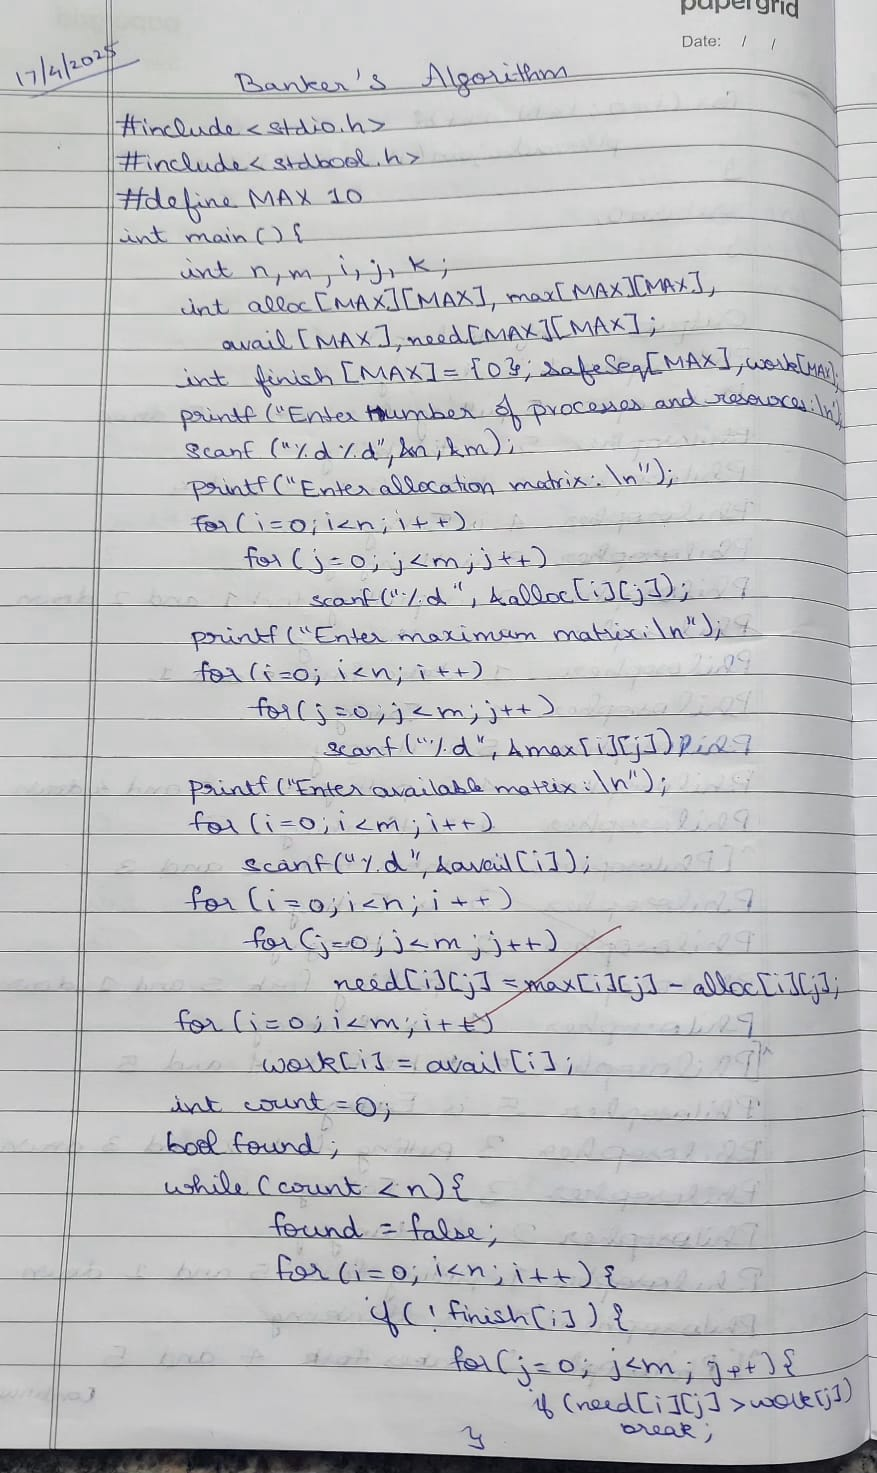 papergrid
Date: / /
17/4/2025
Banker's Algorithm
#include <stdio.h>
#include <stdbool.h>
#define MAX 10
int main() {
int n, m, i, j, k;
int alloc[MAX][MAX], max[MAX][MAX],
avail[MAX], need[MAX][MAX];
int finish[MAX] = {0}; safeSeq[MAX], work[MAX];
printf("Enter number of processes and resources:\n");
scanf("%d %d", &n, &m);
printf("Enter allocation matrix:\n");
for(i=0; i<n; i++)
for(j=0; j<m; j++)
scanf("%d", &alloc[i][j]);
printf("Enter maximum matrix:\n");
for(i=0; i<n; i++)
for(j=0; j<m; j++)
scanf("%d", &max[i][j])
printf("Enter available matrix:\n");
for(i=0; i<m; i++)
scanf("%d", &avail[i]);
for(i=0; i<n; i++)
for(j=0; j<m; j++)
need[i][j] = max[i][j] - alloc[i][j];
for(i=0; i<m; i++)
work[i] = avail[i];
int count = 0;
bool found;
while(count < n) {
found = false;
for(i=0; i<n; i++) {
if(!finish[i]) {
for(j=0; j<m; j++) {
if(need[i][j] > work[j])
break;
}